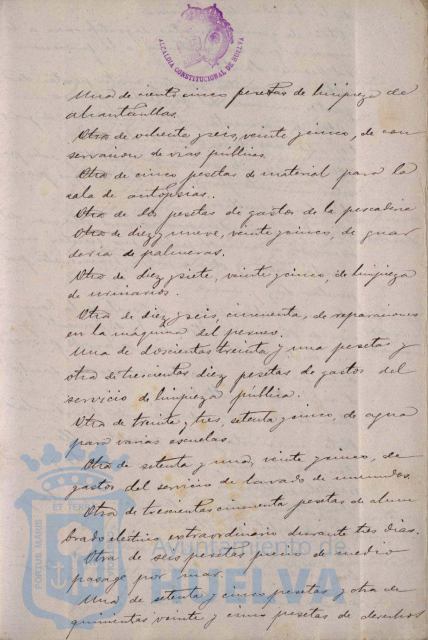 ALCALDIA CONSTITUCIONAL DE HUELVA
Una de ciento cinco pesetas de limpieza de
alcantarillas.
Otra de ochenta y seis, veinte y cinco, de con
servacion de vias públicas.
Otra de cinco pesetas de material para la
sala de autopsias.
Otra de dos pesetas de gastos de la pescaderia
Otra de diez y nueve, veinte y cinco, de guar
deria de palmeras.
Otra de diez y siete, veinte y cinco, de limpieza
de urinarios.
Otra de diez y seis, cincuenta, de reparaciones
en la máquina del
Una de doscientas treinta y una pesetas y
otra de trescientas diez pesetas de gastos del
servicio de limpieza pública.
Otra de treinta y tres, setenta y cinco, de agua
para varias escuelas.
Otra de setenta y una, veinte y cinco, de
gastos del servicio de lavado de inmundos.
Otra de trescientas cincuenta pesetas de alum
brado eléctrico extraordinario durante tres dias.
Otra de seis pesetas precio de medio
pasage por mar.
Una de setenta y cinco pesetas y otra de
quinientas veinte y cinco pesetas de derechos
PORTUS MARIS ET TERRÆ
Ayuntamiento de
HUELVA